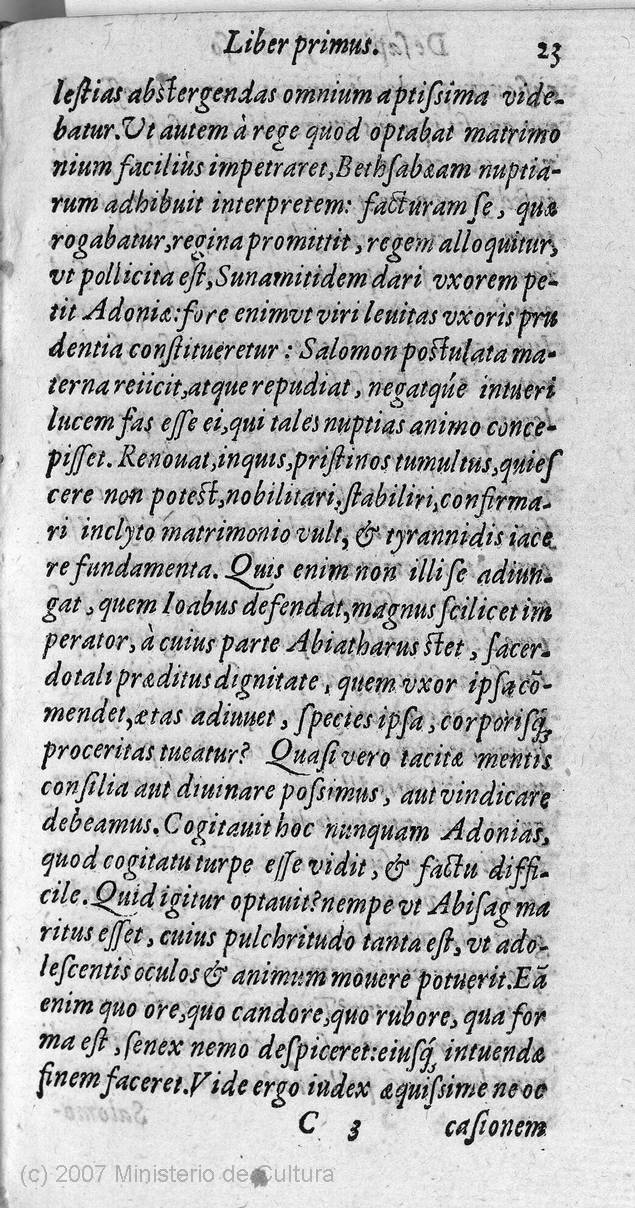 Liber primus. 23
leſtias abſtergendas omnium aptiſsima vide-
batur.Vt autem à rege quod optabat matrimo
nium faciliùs impetraret,Bethſabæam nuptia-
rum adhibuit interpretem: facturam ſe, quæ
rogabatur,regina promittit, regem alloquitur,
vt pollicita eſt,Sunamitidem dari vxorem pe-
tit Adoniæ:fore enim vt viri leuitas vxoris pru
dentia conſtitueretur: Salomon poſtulata ma-
terna reiicit,atque repudiat, negatqúe intueri
lucem fas eſſe ei,qui tales nuptias animo conce-
piſſet. Renouat,inquis,priſtinos tumultus,quieſ
cere non poteſt,nobilitari,ſtabiliri,confirma-
ri inclyto matrimonio vult, & tyrannidis iace
re fundamenta. Quis enim non illi ſe adiun-
gat, quem Ioabus defendat,magnus ſcilicet im
perator, à cuius parte Abiatharus ſtet, ſacer-
dotali præditus dignitate, quem vxor ipſa cō-
mendet,ætas adiuuet, ſpecies ipſa, corporiſq́;
proceritas tueatur? Quaſi vero tacitæ mentis
conſilia aut diuinare poſsimus, aut vindicare
debeamus.Cogitauit hoc nunquam Adonias,
quod cogitatu turpe eſſe vidit, & factu diffi-
cile.Quid igitur optauit?nempe vt Abiſag ma
ritus eſſet, cuius pulchritudo tanta eſt, vt ado-
leſcentis oculos & animum mouere potuerit.Eā
enim quo ore,quo candore,quo rubore, qua for
ma eſt, ſenex nemo deſpiceret:eiuſq́; intuendæ
finem faceret.Vide ergo iudex æquiſsime ne oc
C 3 caſionem
(c) 2007 Ministerio de Cultura